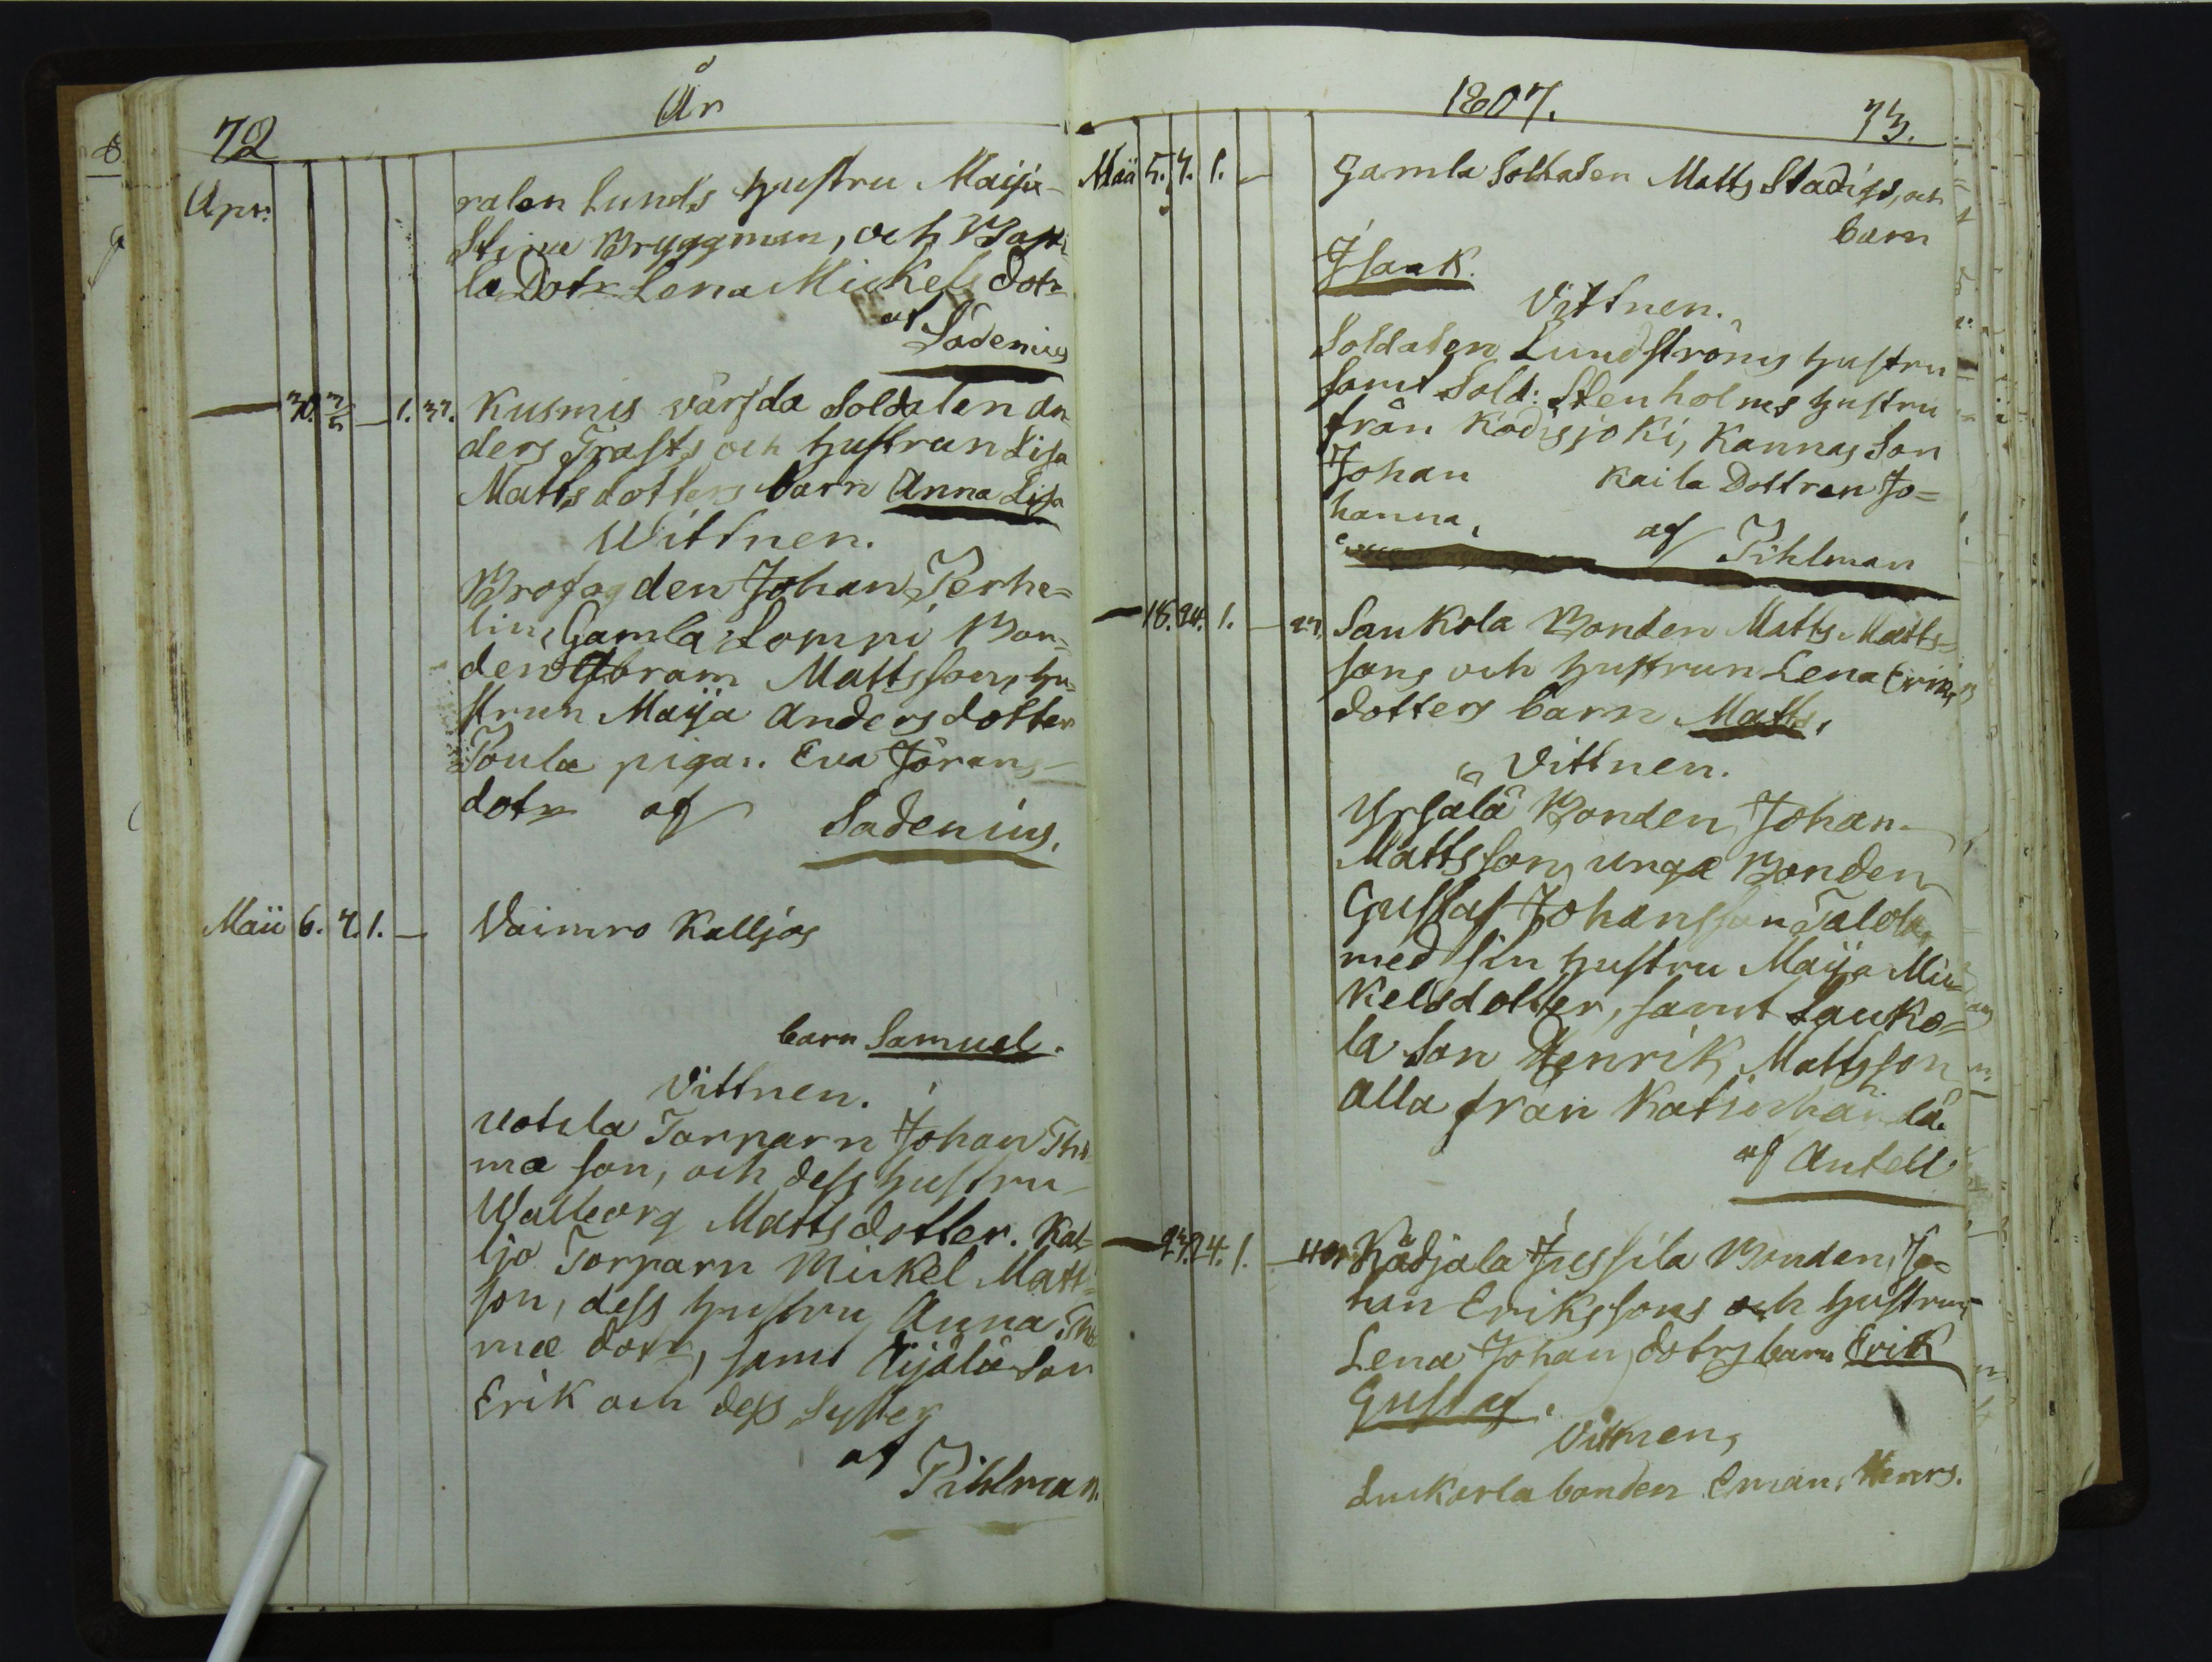 72
År
Apr:
ralen Lunds hustru Maija
Stina Bryggman, och
la Dotr Lena Mickels Dotr
af
Sadenius
30. 3/5 — 1. 37. Kusmis värfda Soldaten An
ders Grafts och hustrun Lisa
Mattsdotters barn Anna Lisa
Wittnen.
Brofogden Johan Perhe=
lin, Gamla Lompi Bon=
den Abram Mattsson, hu=
strun Maija Andersdotter
Poula pigan Eva Jörans
dotr af Sadenius.
Maii 6. 7. 1. — Vaimro Kalljos
barn Samuel.
Vittnen.
Uotila Torparn Johan Tho
mæ son, och dess hustru
Walborg Mattsdotter. Kal=
ljo Torparn Mickel Matt=
son, dess hustru Anna Tho
mæ dotr, samt Äijälä Son
Erik och dess Syster
af
Pihlman.
1807.
73.
Maii 5. 7. 1. — Gamla Soldaten Matts Stadigs, och
barn
Isaak.
Vittnen.
Soldaten Lundströms hustru
samt Sold: Stenholms hustru
från Kodisjoki, Kannas Son
Johan Kaila Dottren Jo=
hanna,
af Pihlman
— 18. 24. 1. — 27. Saukola Bonden Matts Matts=
sons och hustrun Lena Eriks
dotters barn Matts,
Vittnen.
Yrjälä Bonden Johan
Mattsson, unga Bonden
Gustaf Johansson Talola,
med sin hustru Maija Mic=
kelsdotter, samt Sauko=
la Son Henrik Mattsson
alla från
af Antell
— 23. 24. 1. — 40. Kådjala Jussila Bonden, Jo=
han Erikssons och hustrun
Lena Johansdotrs barn Erik
Gustaf.
Vittnen,
bonden Eman. Henrs.